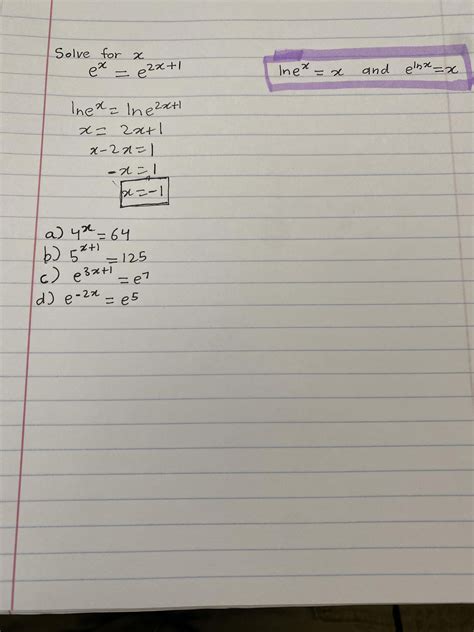 Solve for x
e^x = e^{2x+1}
ln e^x = x and e^{ln x} = x
ln e^x = ln e^{2x+1}
x = 2x+1
x-2x=1
-x=1
x=-1
a) 4^x = 64
b) 5^{x+1} = 125
c) e^{3x+1} = e^7
d) e^{-2x} = e^5